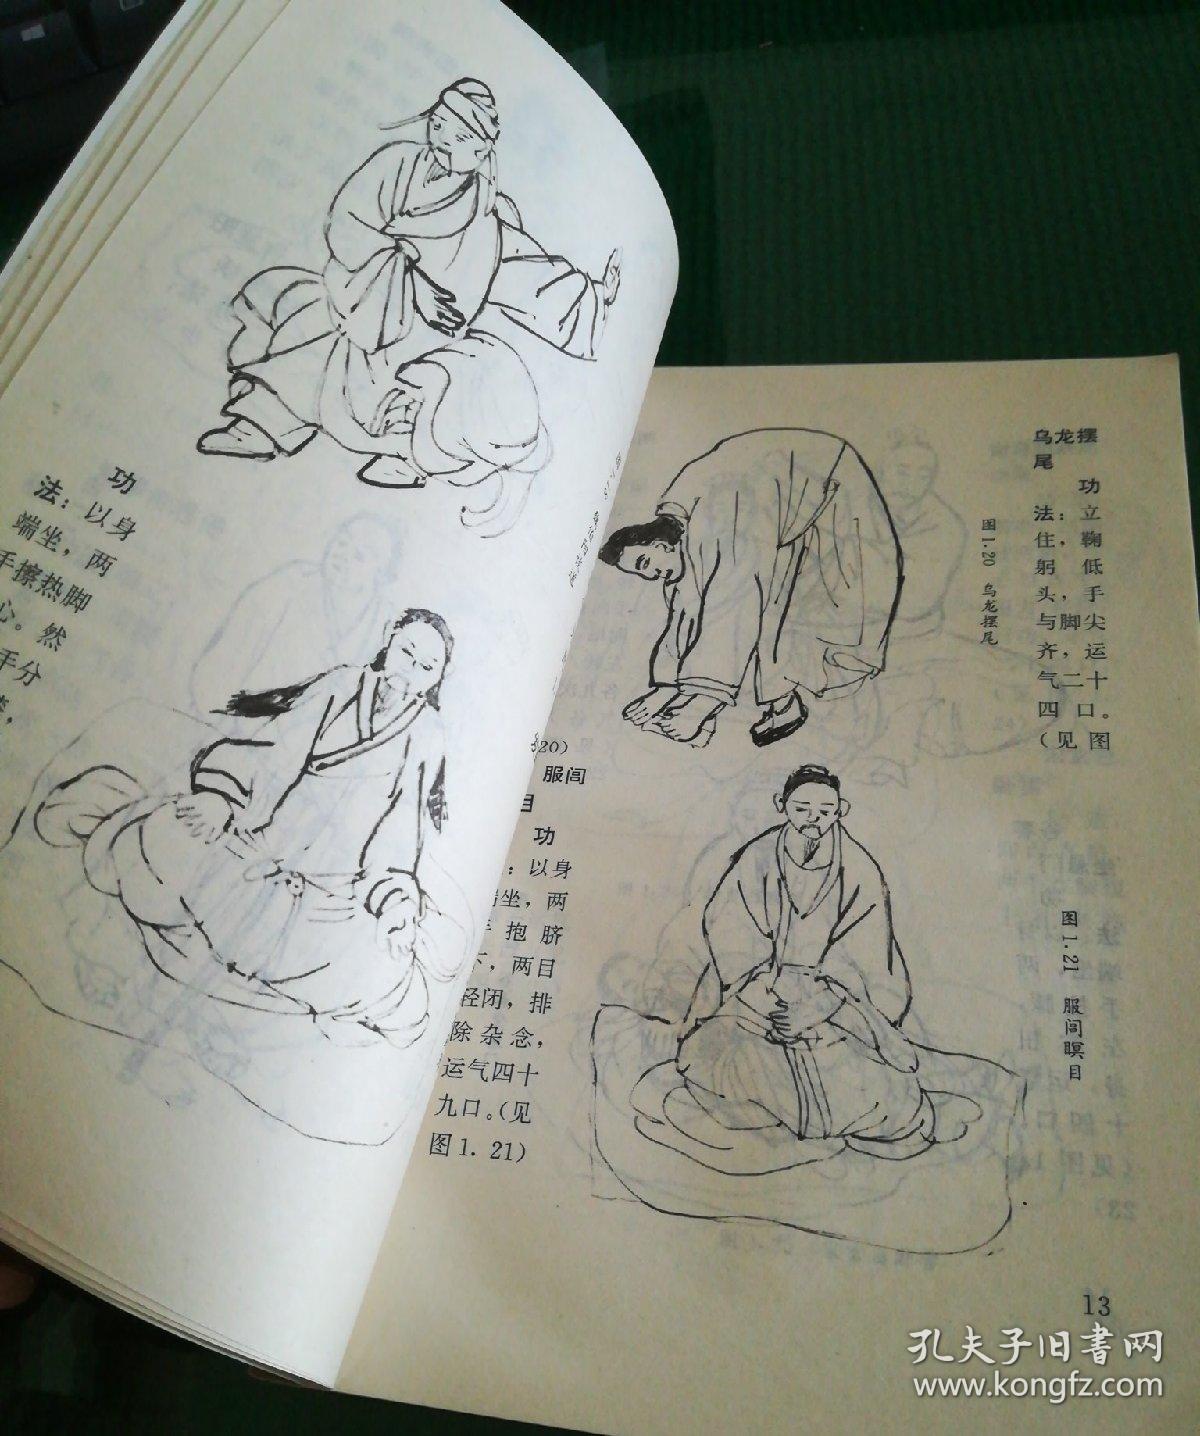 功
法：以身
端坐，两
手擦热脚
心。然
手分
乌龙摆
尾
功
法：立
住，鞠
躬低
头，手
与脚尖
齐，运
气二十
四口。
（见图
图1.20 乌龙摆尾
20）
服闾
目
功
：以身
坐，两
抱脐
下，两目
轻闭，排
除杂念，
运气四十
九口。（见
图1.21）
图1.21 服闾瞑目
13
孔夫子旧书网
www.kongfz.com